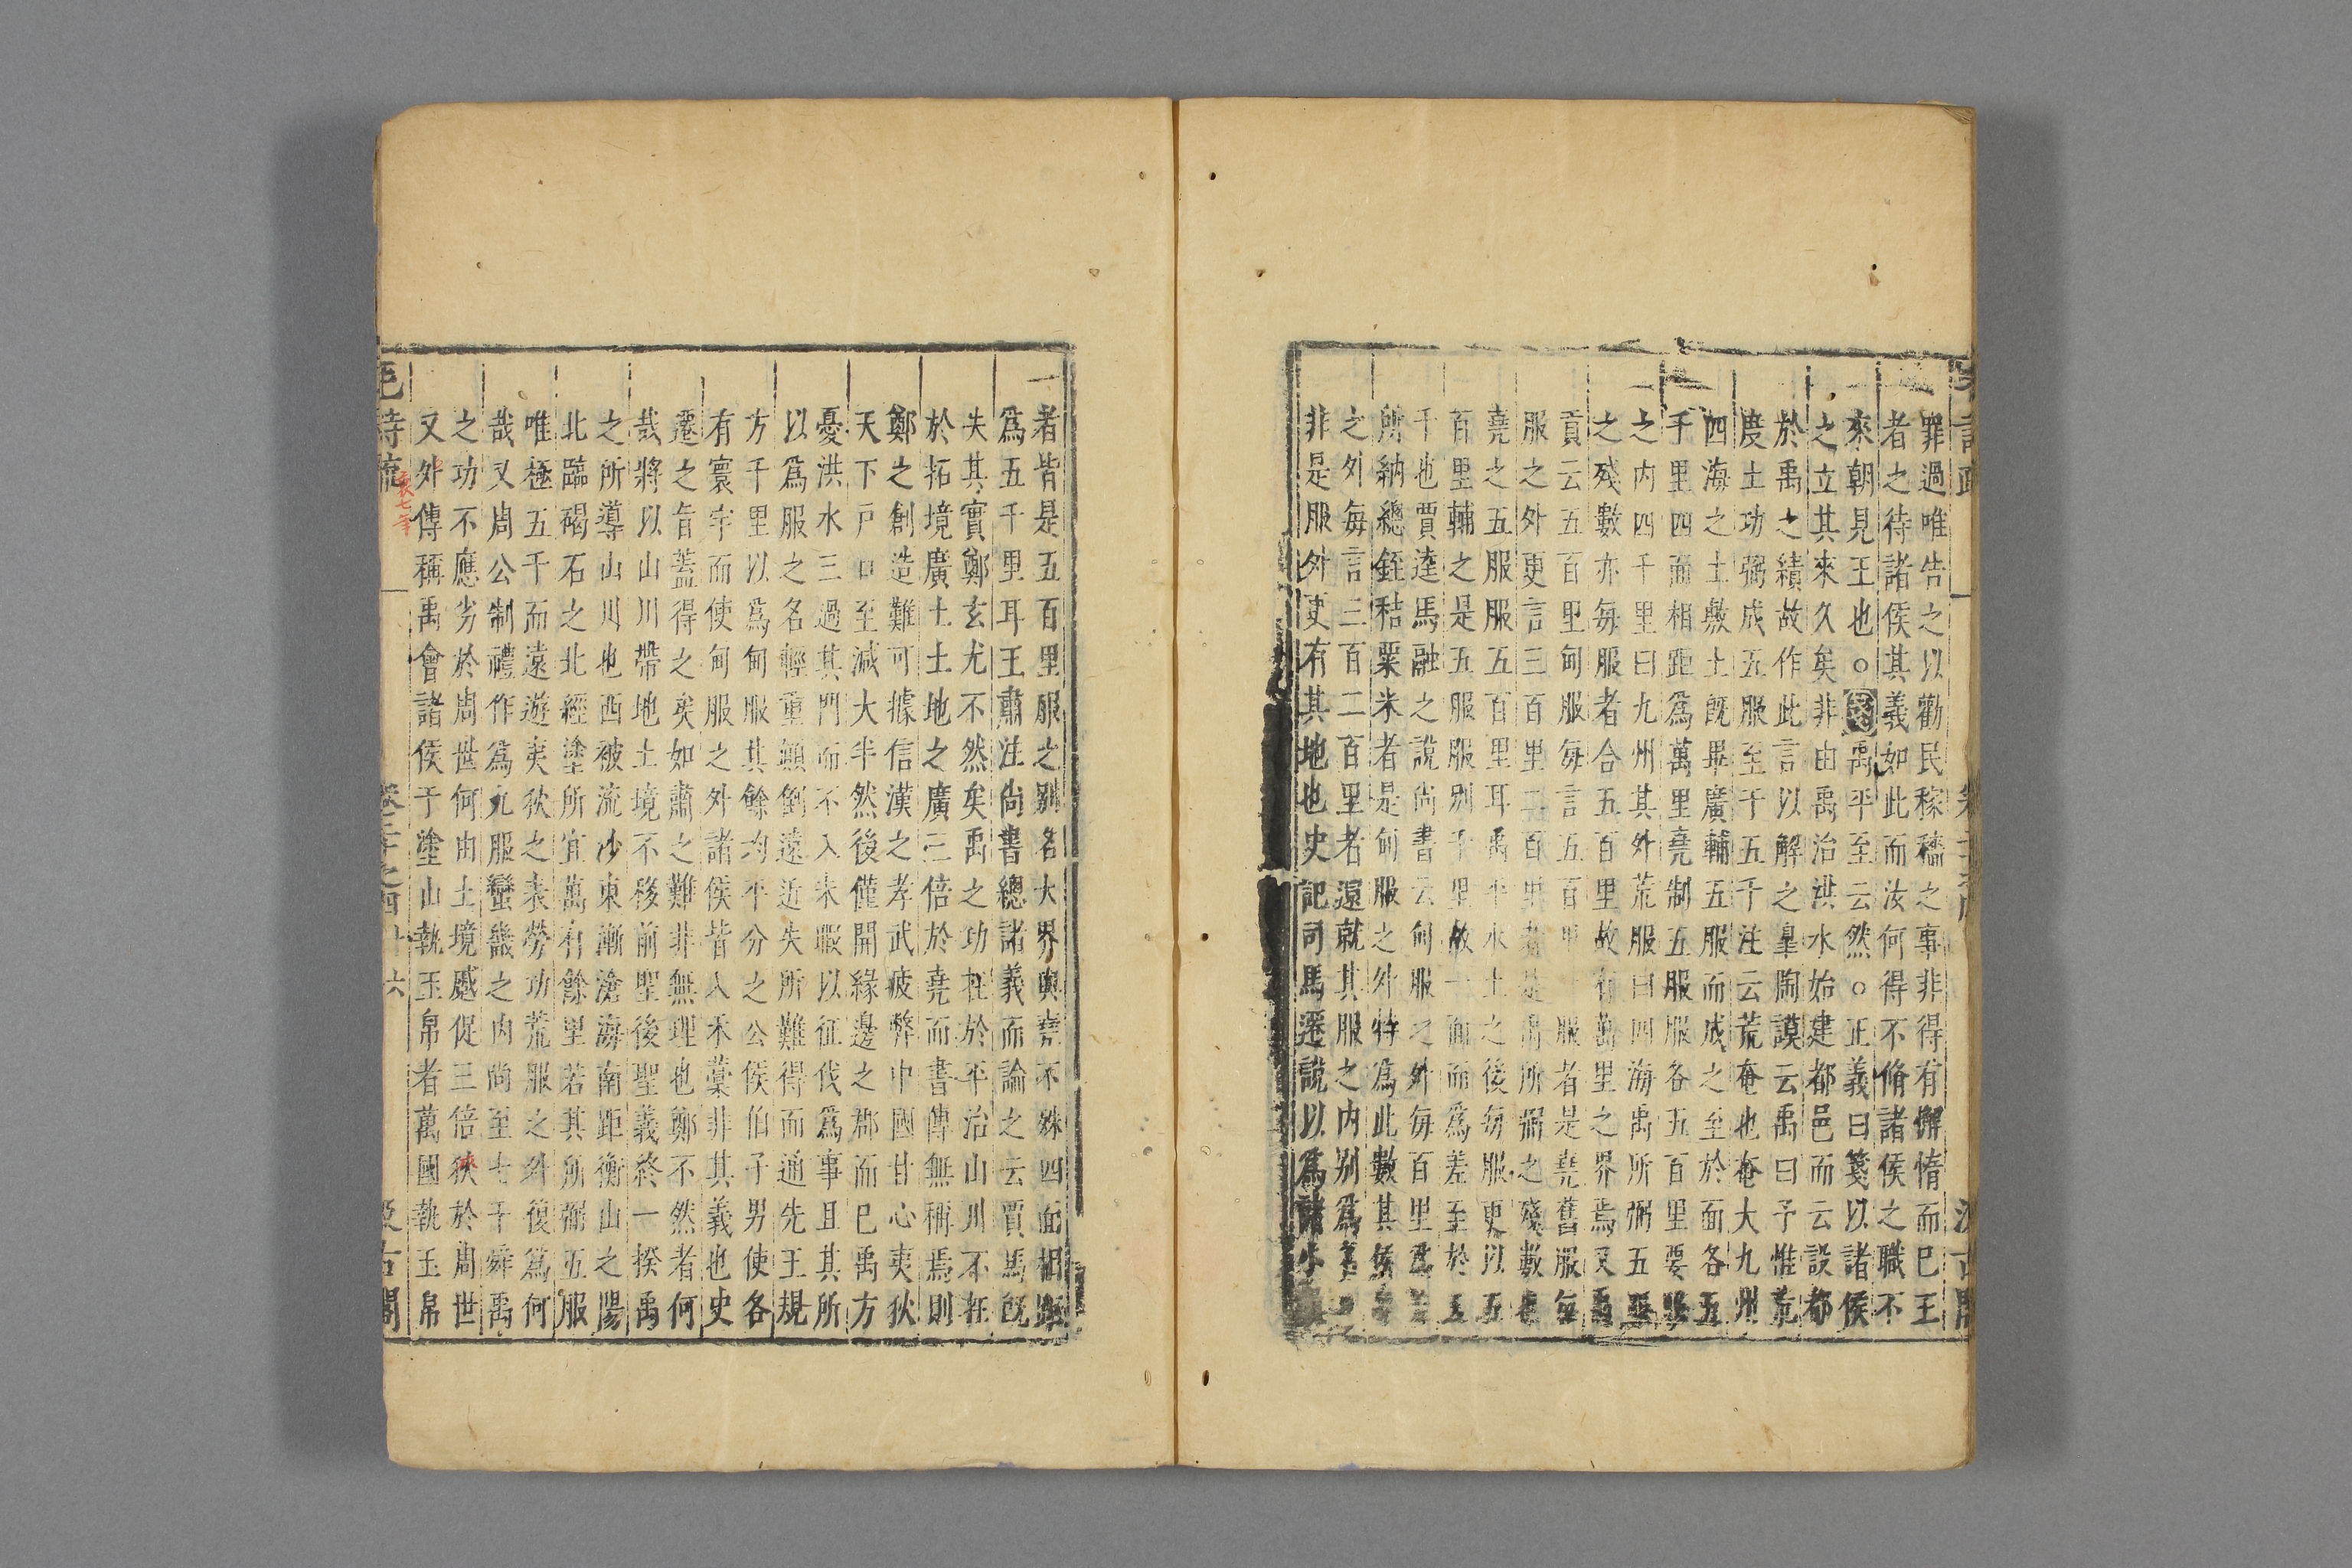 罪過唯告之以勸民稼穡之事非得有懈惰而巳王
者之待諸侯其義如此而汝何得不脩諸侯之職不
來朝見王也○禹平至云然○正義曰箋以諸侯
之立其來久矣非由禹治洪水始建都邑而云設都
於禹之績故作此言以解之臯陶謨云禹曰予惟荒
度土功弼成五服至于五千注云荒奄也奄大九州
四海之土敷土旣畢廣輔五服而成之至於面各五
千里四面相距爲萬里堯制五服服各五百里要服
之内四千里曰九州其外荒服曰四海禹所弼五服
之殘數亦每服者合五百里故有萬里之界焉又禹
貢云五百里甸服每言五百里服者是堯舊服每
服之外更言三百里二百里者是禹所弼之殘數也
堯之五服服五百里耳禹平水土之後每服更以五
百里輔之是五服服别千里故一面而爲差至於五
千也賈逵馬融之說尚書云甸服之外每百里爲差
所納總銍秸粟米者是甸服之外特爲此數其侯
之外每言三百二百里者還就其服之内别爲名
非是服外更有其地也史記司馬遷說以爲諸小
者皆是五百里服之别名大界與堯不殊四面相距
爲五千里耳王肅注尚書總諸義而論之云賈馬旣
失其實鄭玄尤不然矣禹之功在於平治山川不在
於拓境廣土土地之廣三倍於堯而書傳無稱焉則
鄭之創造難可據信漢之孝武疲弊中國甘心夷狄
天下戸口至減大半然後僅開緣邊之郡而巳禹方
憂洪水三過其門而不入未暇以征伐爲事且其所
以爲服之名輕重顛倒遠近失所難得而通先王規
方千里以爲甸服其餘均平分之公侯伯子男使各
有寰宇而使甸服之外諸侯皆入禾藁非其義也史
遷之旨葢得之矣如肅之難非無理也鄭不然者何
哉將以山川帶地土境不移前聖後聖義終一揆禹
之所導山川也西被流沙東漸滄海南距衡山之陽
北臨碣石之北經塗所宜萬有餘里若其所弼五服
唯極五千而遠遊夷狄之表勞功荒服之外復爲何
哉又周公制禮作爲九服蠻畿之内尚至七千舜禹
之功不應劣於周世何由土境蹙促三倍狹於周世
又外傳稱禹會諸侯于塗山執玉帛者萬國執玉帛
詩疏
卷二十之四
十六